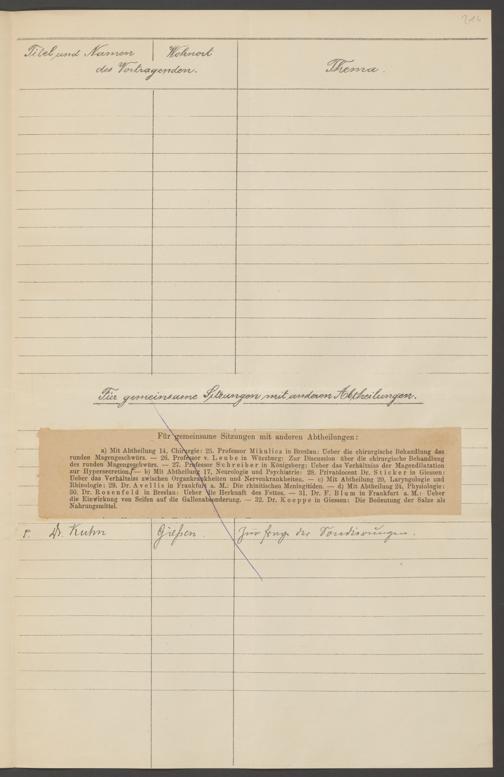 Titel und Namen | Wohnort
des Vortragenden.
Thema.
Für gemeinsame Sitzungen mit anderen Abtheilungen.
Für gemeinsame Sitzungen mit anderen Abtheilungen:
a) Mit Abtheilung 14, Chirurgie: 25. Professor Mikulicz in Breslau: Ueber die chirurgische Behandlung des
runden Magengeschwürs. — 26. Professor v. Leube in Würzburg: Zur Discussion über die chirurgische Behandlung
des runden Magengeschwürs. — 27. Professor Schreiber in Königsberg: Ueber das Verhältniss der Magendilatation
zur Hypersecretion. — b) Mit Abtheilung 17, Neurologie und Psychiatrie: 28. Privatdocent Dr. Sticker in Giessen:
Ueber das Verhältniss zwischen Organkrankheiten und Nervenkrankheiten. — c) Mit Abtheilung 20, Laryngologie und
Rhinologie: 29. Dr. Avellis in Frankfurt a. M.: Die rhinitischen Meningitiden. — d) Mit Abtheilung 24, Physiologie:
30. Dr. Rosenfeld in Breslau: Ueber die Herkunft des Fettes. — 31. Dr. F. Blum in Frankfurt a. M.: Ueber
die Einwirkung von Seifen auf die Gallenabsonderung. — 32. Dr. Koeppe in Giessen: Die Bedeutung der Salze als
Nahrungsmittel.
Dr. Kuhn Gießen. Zur Frage der Sondierungen.